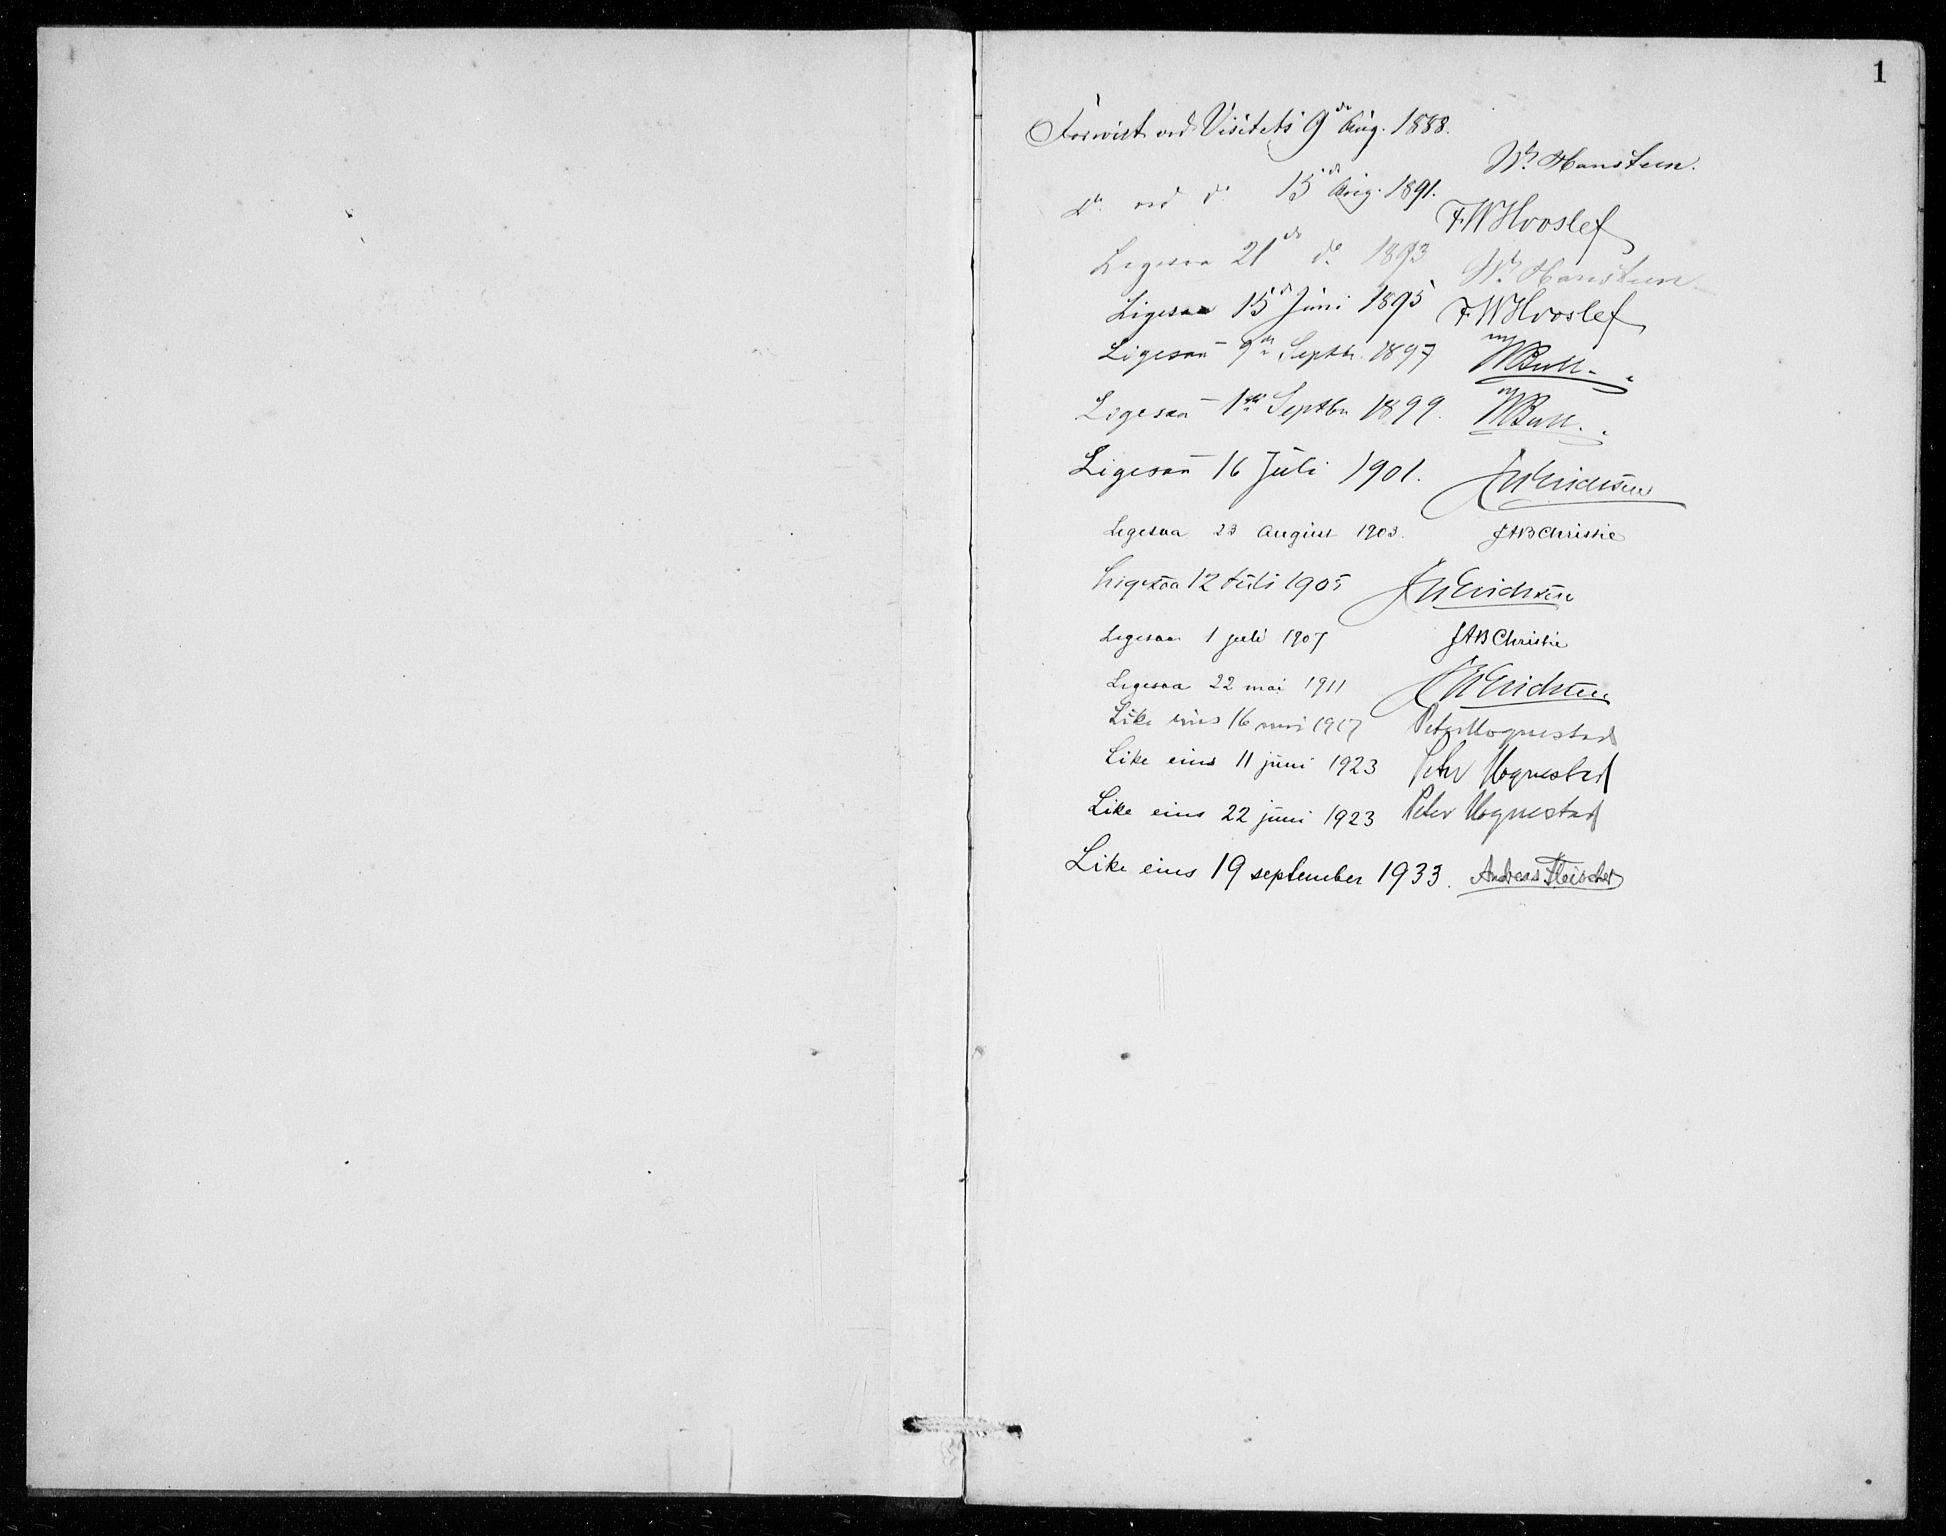 1
Forevist ved Visitats 9de Aug. 1888.
Wm Hansteen.
do ved do 15de Aug. 1891. FWHvoslef
Ligesaa 21de do 1893 Wm Hansteen
Ligesaa 15de Juni 1895 FWHvoslef
Ligesaa 9de Septbr. 1897 WBull.
Ligesaa 1ste Septbr 1899. WBull.
Ligesaa 16 Juli 1901. Erichsen
Ligesaa 23 august 1903. JABChristie
Ligesaa 12 Juli 1905 Erichsen
Ligesaa 1 juli 1907 JABChristie
Ligesaa 22 mai 1911 Erichsen
Like eins 16 mai 1917 Peter Hognestad
Like eins 11 juni 1923 Peter Hognestad
Like eins 22 juni 1923 Peter Hognestad
Like eins 19 september 1933. Andreas Fleischer